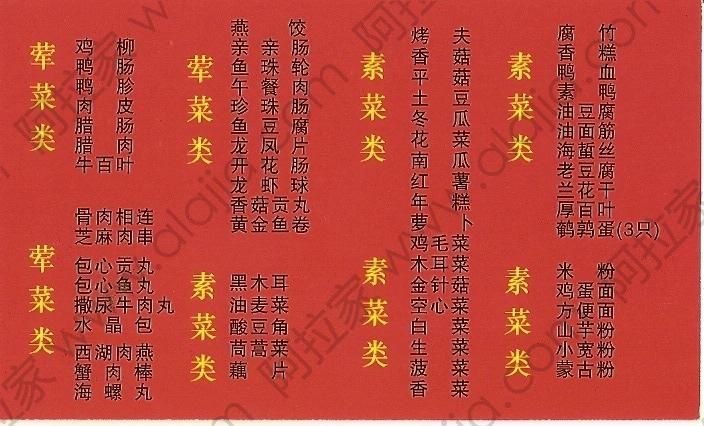 荤菜类
鸡柳
鸭肠
鸭胗
肉皮
腊肠
腊肉
牛百叶
荤菜类
骨肉相连
芝麻肉串
包心贡丸
包心鱼丸
撒尿牛肉丸
水晶包
西湖肉燕
蟹肉棒
海螺丸
荤菜类
燕饺
亲亲肠
鱼珠轮
午餐肉
珍珠肠
鱼豆腐
龙凤片
开花肠
龙虾球
香菇贡丸
黄金鱼卷
素菜类
黑木耳
油麦菜
酸豆角
茼蒿菜
藕片
素菜类
烤夫
香菇
平菇
土豆
冬瓜
花菜
南瓜
红薯
年糕
萝卜
素菜类
鸡毛菜
木耳菜
金针菇
空心菜
白菜
生菜
菠菜
香菜
素菜类
腐竹
香糕
鸭血
素鸭
油豆腐
油面筋
海蜇丝
老豆腐
兰花干
厚百叶
鹌鹑蛋(3只)
素菜类
米粉
鸡蛋面
方便面
山芋粉
小宽粉
蒙古粉
阿拉家 www.alajia.com